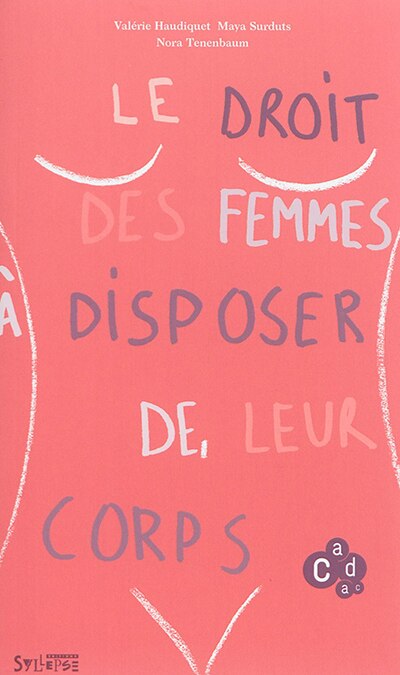 Valérie Haudiquet Maya Surduts
Nora Tenenbaum
LE DROIT
DES FEMMES
À DISPOSER
DE LEUR
CORPS
Cadac
EDITIONS
SYLLEPSE